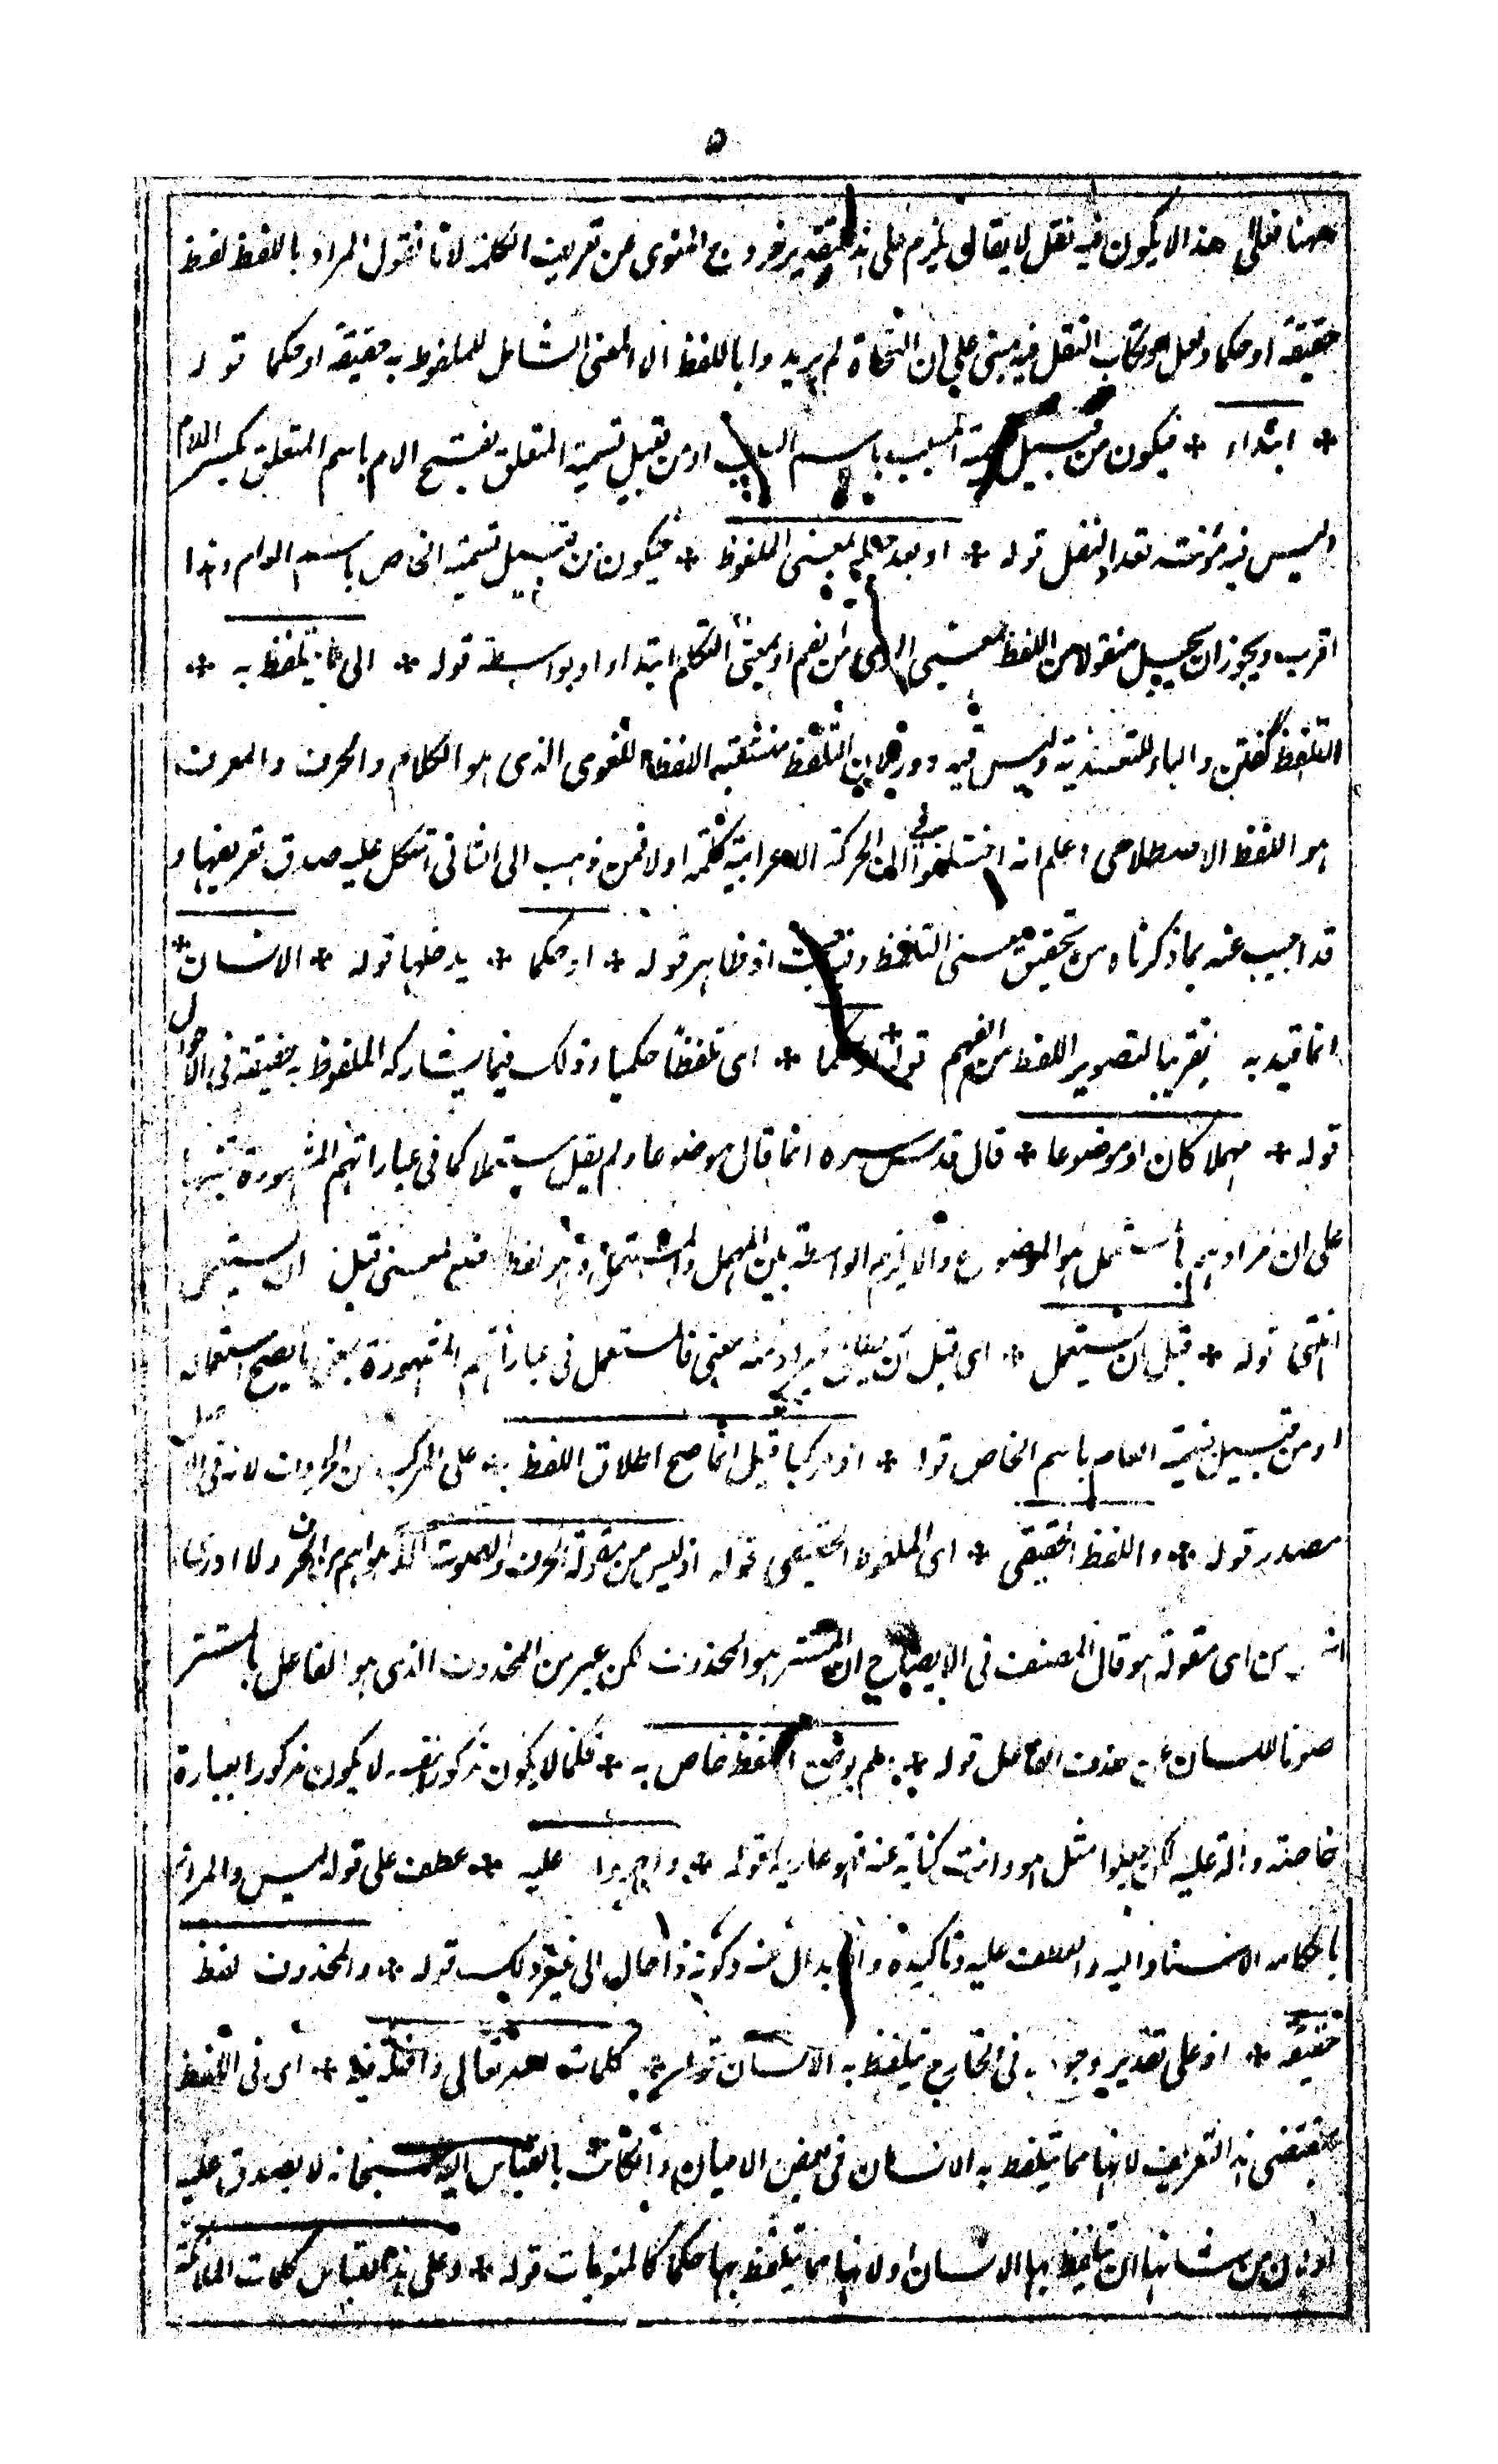 ٥
ههنا فعلى هذا لا يكون فيه نقل لا يقال يلزم على هذا التقدير خروج المنوى من تعريف الكلمة لانا نقول المراد باللفظ لفظ
حقيقة او حكما ولعل ارتكاب النقل فيه مبنى على ان النحاة لم يريدوا باللفظ الا المعنى الشامل للملفوظ به حقيقة او حكما قوله
* ابتداء * فيكون من قبيل تسمية المسبب باسم السبب او من قبيل تسمية المتعلق بفتح الام باسم المتعلق بكسر اللام
وليس فيه مؤنة تعدد النقل قوله * او بعد جعله بمعنى الملفوظ * فيكون من قبيل تسمية الخاص باسم العام وهذا
اقرب ويجوز ان يجعل منقولا من اللفظ بمعنى الرمى من الفم او بمعنى التكلم ابتداء او بواسطة قوله * الى ما يتلفظ به *
التلفظ گفتن والباء للتعدية وليس فيه دور لان التلفظ مشتقة اللفظ اللغوى الذى هو الكلام والحرف والمعرف
هو اللفظ الاصطلاحى اعلم انه اختلفوا فى ان الحركة الاعرابية كلمة او لا فمن ذهب الى الثانى اشكل عليه صدق تعريفها و
قد اجيب عنه بما ذكرناه من تحقيق معنى التلفظ وفيه بحث اذ ظاهر قوله * او حكما * يدخلها قوله * الانسان *
انما قيد به تقريبا لتصوير اللفظ من الفهم قوله * او حكما * اى تلفظا حكميا وذلك فيما يشاركه الملفوظ به حقيقة فى الاحوال
قوله * مهملا كان او موضوعا * قال قدس سره انما قال موضوعا ولم يقل مستعملا كما فى عباراتهم المشهورة تنبيها
على ان مرادهم بالمستعمل هو الموضوع والا يلزم الواسطة بين المهمل والمستعمل وهو لفظ وضع لمعنى قبل ان يستعمل
انتهى قوله * قبل ان يستعمل * اى قبل ان يطلق ويراد منه معنى فالمستعمل فى عباراتهم المشهورة بمعنى ما يصح استعماله
او من قبيل تسمية العام باسم الخاص قوله * او مركبا قيل انما صح اطلاق اللفظ * على المركب من المجردات لانه فى الاصل
مصدر قوله * واللفظ الحقيقى * اى الملفوظ الحقيقى قوله اذ ليس من مقولة الحرف والصوت الذى هو اعم من الحرف ولا ادرى
انه من اى مقولة هو قال المصنف فى الايضاح ان المستتر هو المحذوف لكن عبر من المحذوف الذى هو الفاعل بالمستتر
صونا للسان عن حذف الفاعل قوله * ولم يوضع له لفظ خاص به * فكما لا يكون مذكورا بنفسه لا يكون مذكورا بعبارة
خاصة دالة عليه لكن جعلوا مثل هو وانت كناية عنه فهو عارية قوله * واجروا عليه * عطف على قوله ليس والمراد
باحكامه الاسناد اليه والعطف عليه وتاكيده والابدال عنه وكونه ذا حال الى غير ذلك قوله * والمحذوف لفظ
حقيقة * اذ على تقدير وجوده فى الخارج يتلفظ به الانسان قوله * كلمات الله تعالى داخلة فيه * اى فى اللفظ
بمقتضى هذا التعريف لانها مما يتلفظ به الانسان فى بعض الاحيان وان كانت بالقياس اليه سبحانه لا يصدق عليه
اولان من شانها ان يتلفظ بها الانسان اولانها مما يتلفظ بها حكما كالمنويات قوله * وعلى هذا القياس كلمات الملائكة